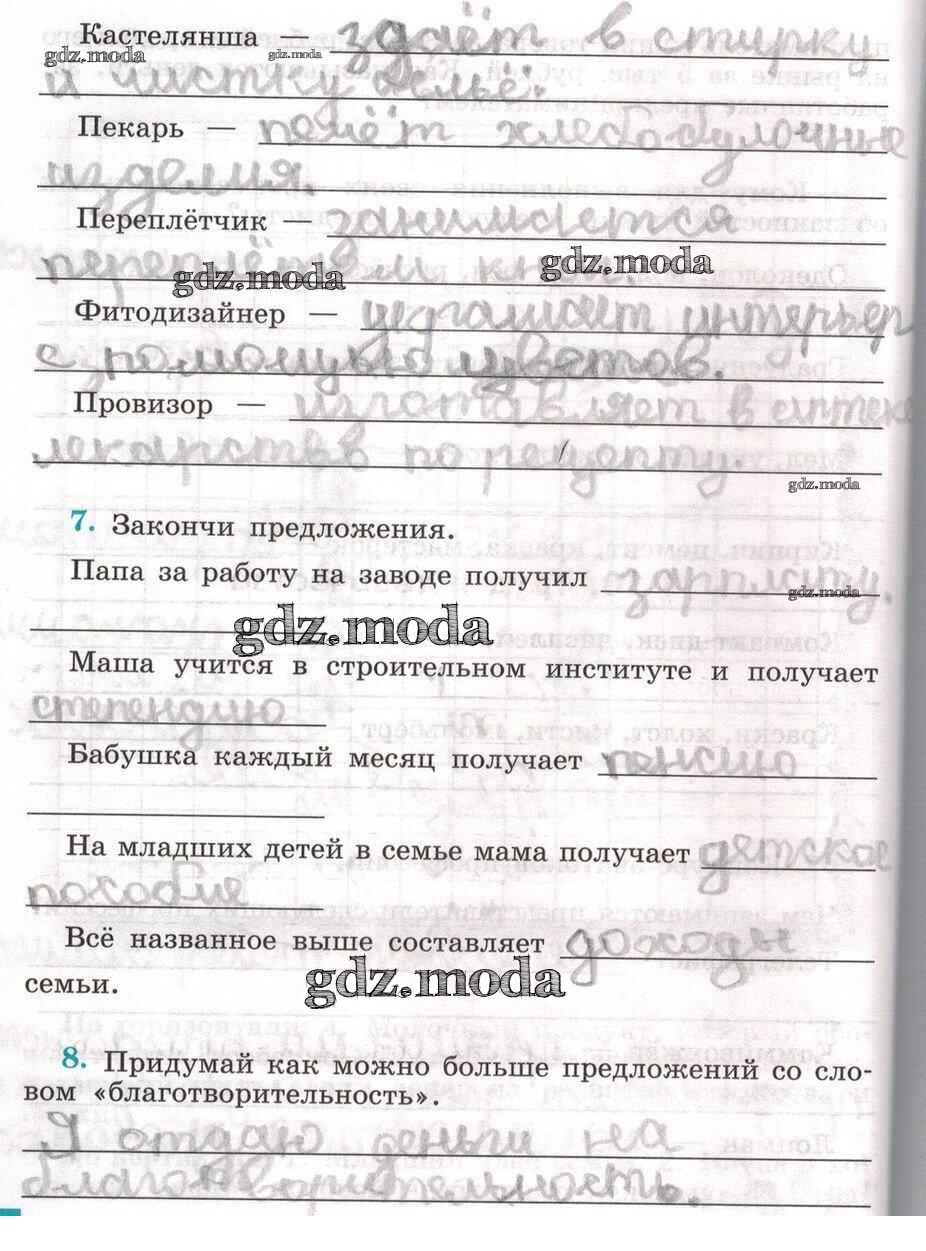 Кастелянша — здаёт в стирку
gdz.moda gdz.moda
и чистку бельё.
Пекарь — печёт хлебобулочные
изделия.
Переплётчик — занимается
переплётом книг.
gdz.moda gdz.moda
Фитодизайнер — украшает интерьер
с помощью цветов.
Провизор — изготавляет в аптеке
лекарства по рецепту.
gdz.moda
7. Закончи предложения.
Папа за работу на заводе получил зарплату.
gdz.moda
gdz.moda
Маша учится в строительном институте и получает
степендию
Бабушка каждый месяц получает пенсию
На младших детей в семье мама получает детское
пособие
Всё названное выше составляет доходы
gdz.moda
семьи.
8. Придумай как можно больше предложений со сло-
вом «благотворительность».
Я отдаю деньги на
благотворительность.